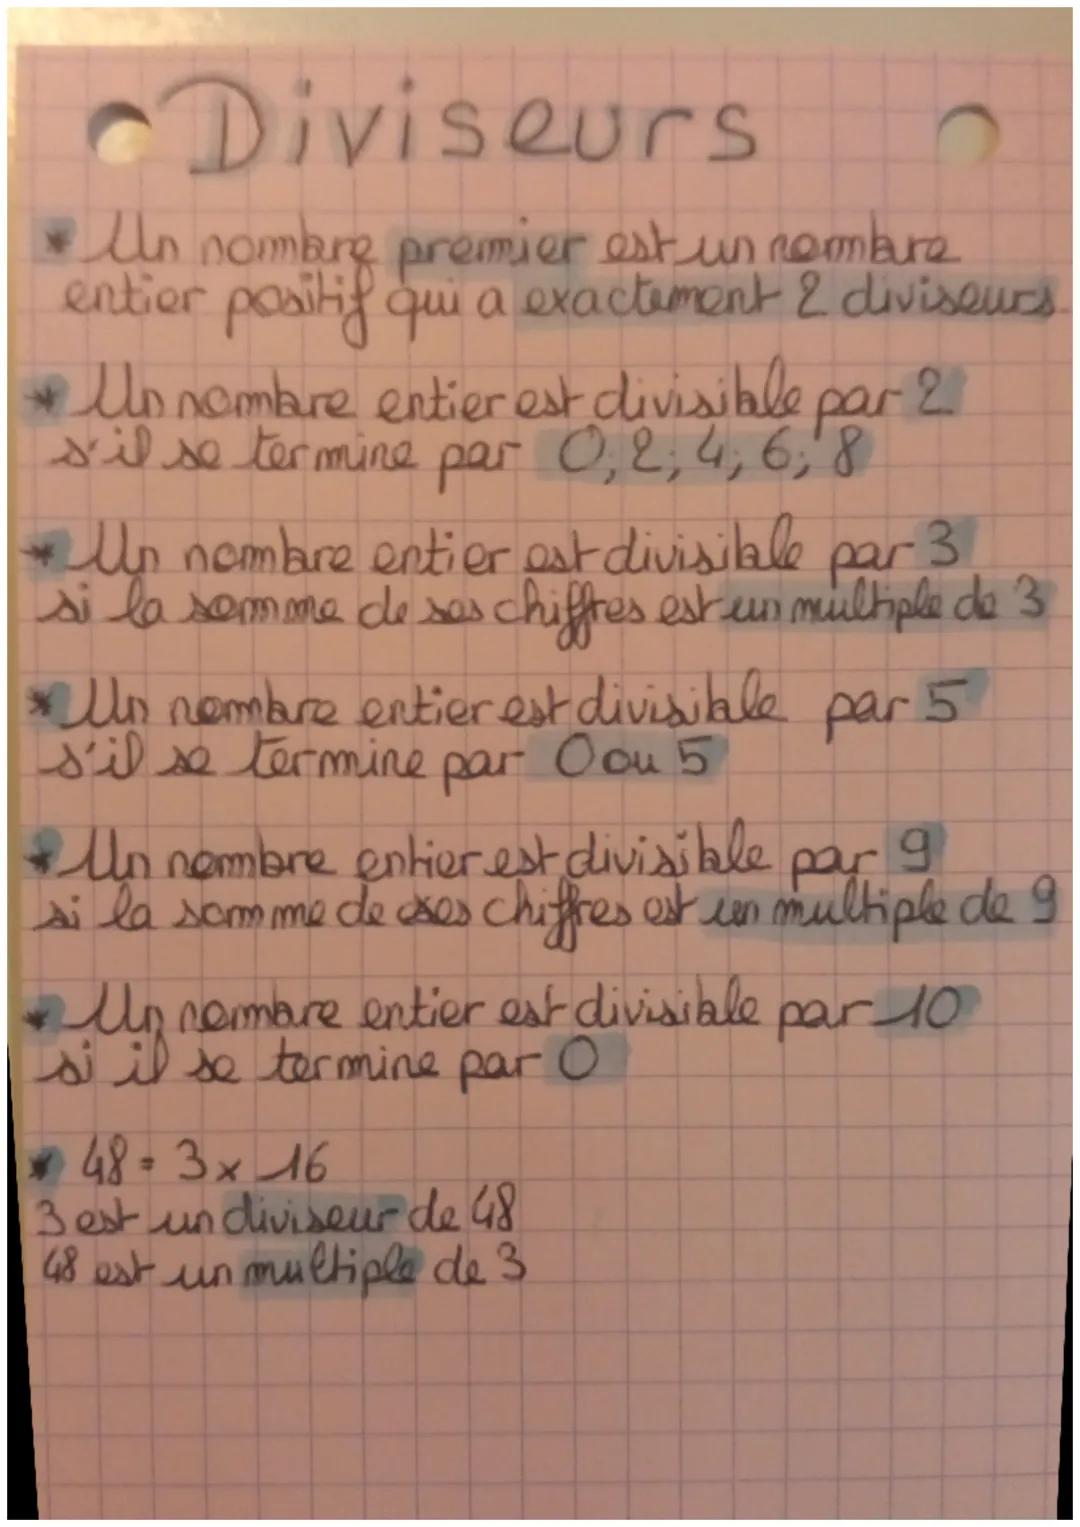 Diviseurs
* Un nombre premier est un nombre
entier positif qui a exactement 2 diviseurs.
* Un nombre entier est divisible par 2
s'il se termine par 0; 2; 4; 6; 8
* Un nombre entier est divisible par 3
si la somme de ses chiffres est un multiple de 3
* Un nombre entier est divisible par 5
s'il se termine par 0 ou 5
* Un nombre entier est divisible par 9
si la somme de ses chiffres est un multiple de 9
* Un nombre entier est divisible par 10
si il se termine par 0
* 48 = 3 x 16
3 est un diviseur de 48
48 est un multiple de 3